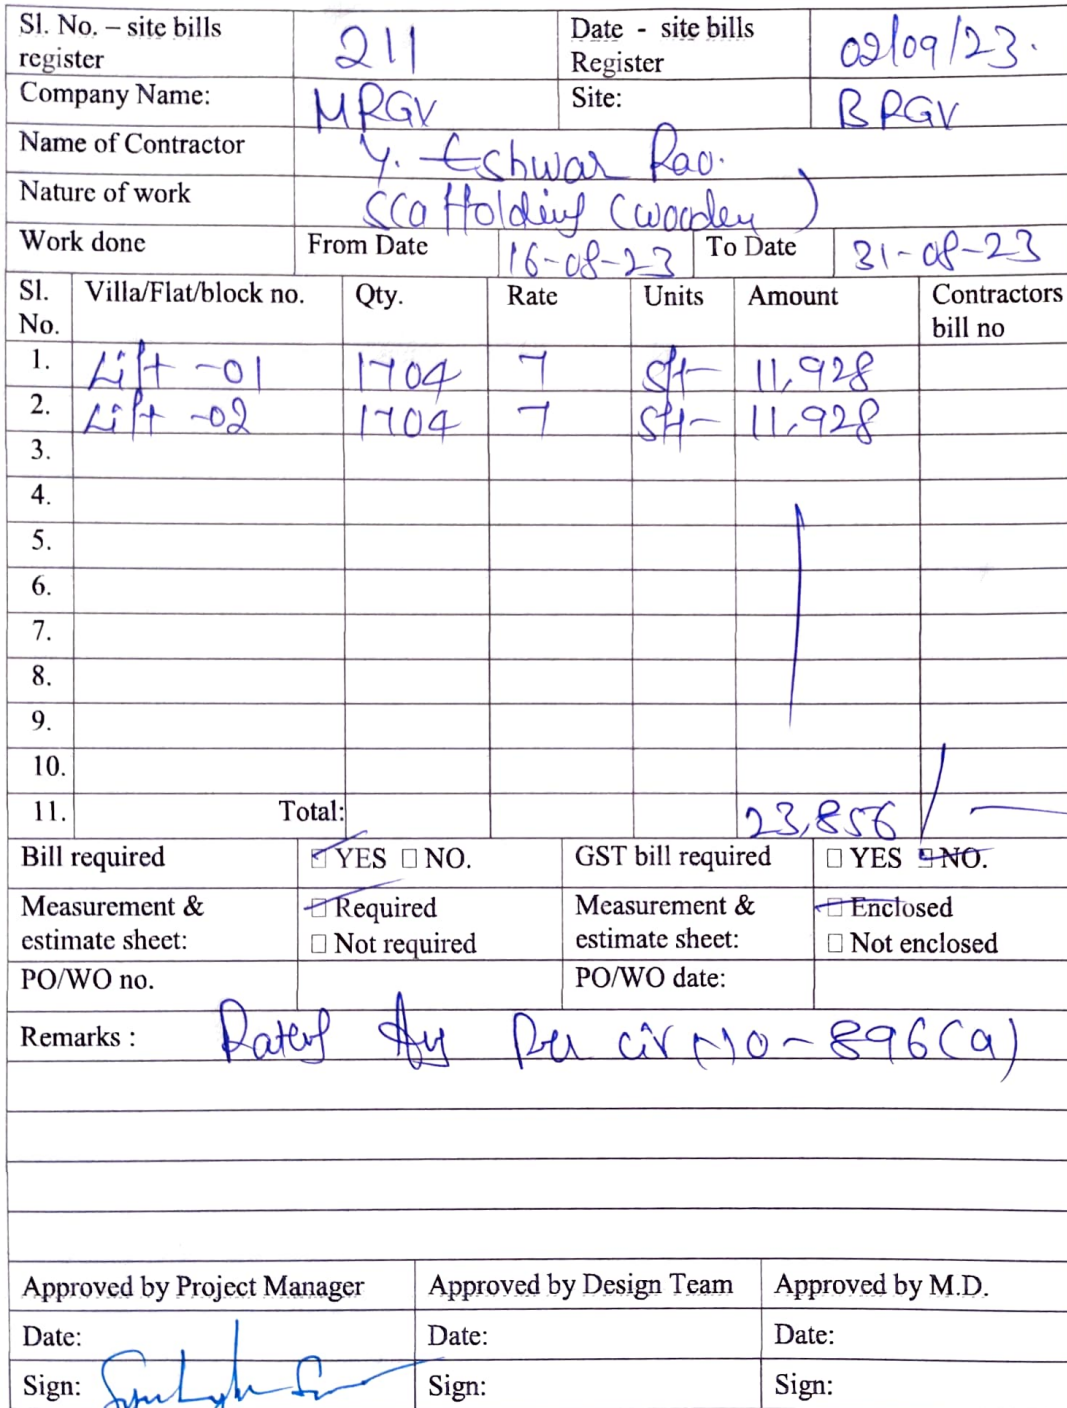 Sl. No. – site bills register 211 Date - site bills Register 02/09/23.
Company Name: MRGV Site: BRGV
Name of Contractor Y. Eshwar Rao.
Nature of work Scaffolding (wooden)
Work done From Date 16-08-23 To Date 31-08-23
Sl. No. Villa/Flat/block no. Qty. Rate Units Amount Contractors bill no
1. Lift -01 1704 7 Sft 11,928
2. Lift -02 1704 7 Sft 11,928
3.
4.
5.
6.
7.
8.
9.
10.
11. Total: 23,856
Bill required ☑ YES ☐ NO. GST bill required ☐ YES ☑ NO.
Measurement & estimate sheet: ☑ Required ☐ Not required Measurement & estimate sheet: ☑ Enclosed ☐ Not enclosed
PO/WO no. PO/WO date:
Remarks : Rates As Per cir NO-896(a)
Approved by Project Manager Approved by Design Team Approved by M.D.
Date: Date: Date:
Sign: Sign: Sign: